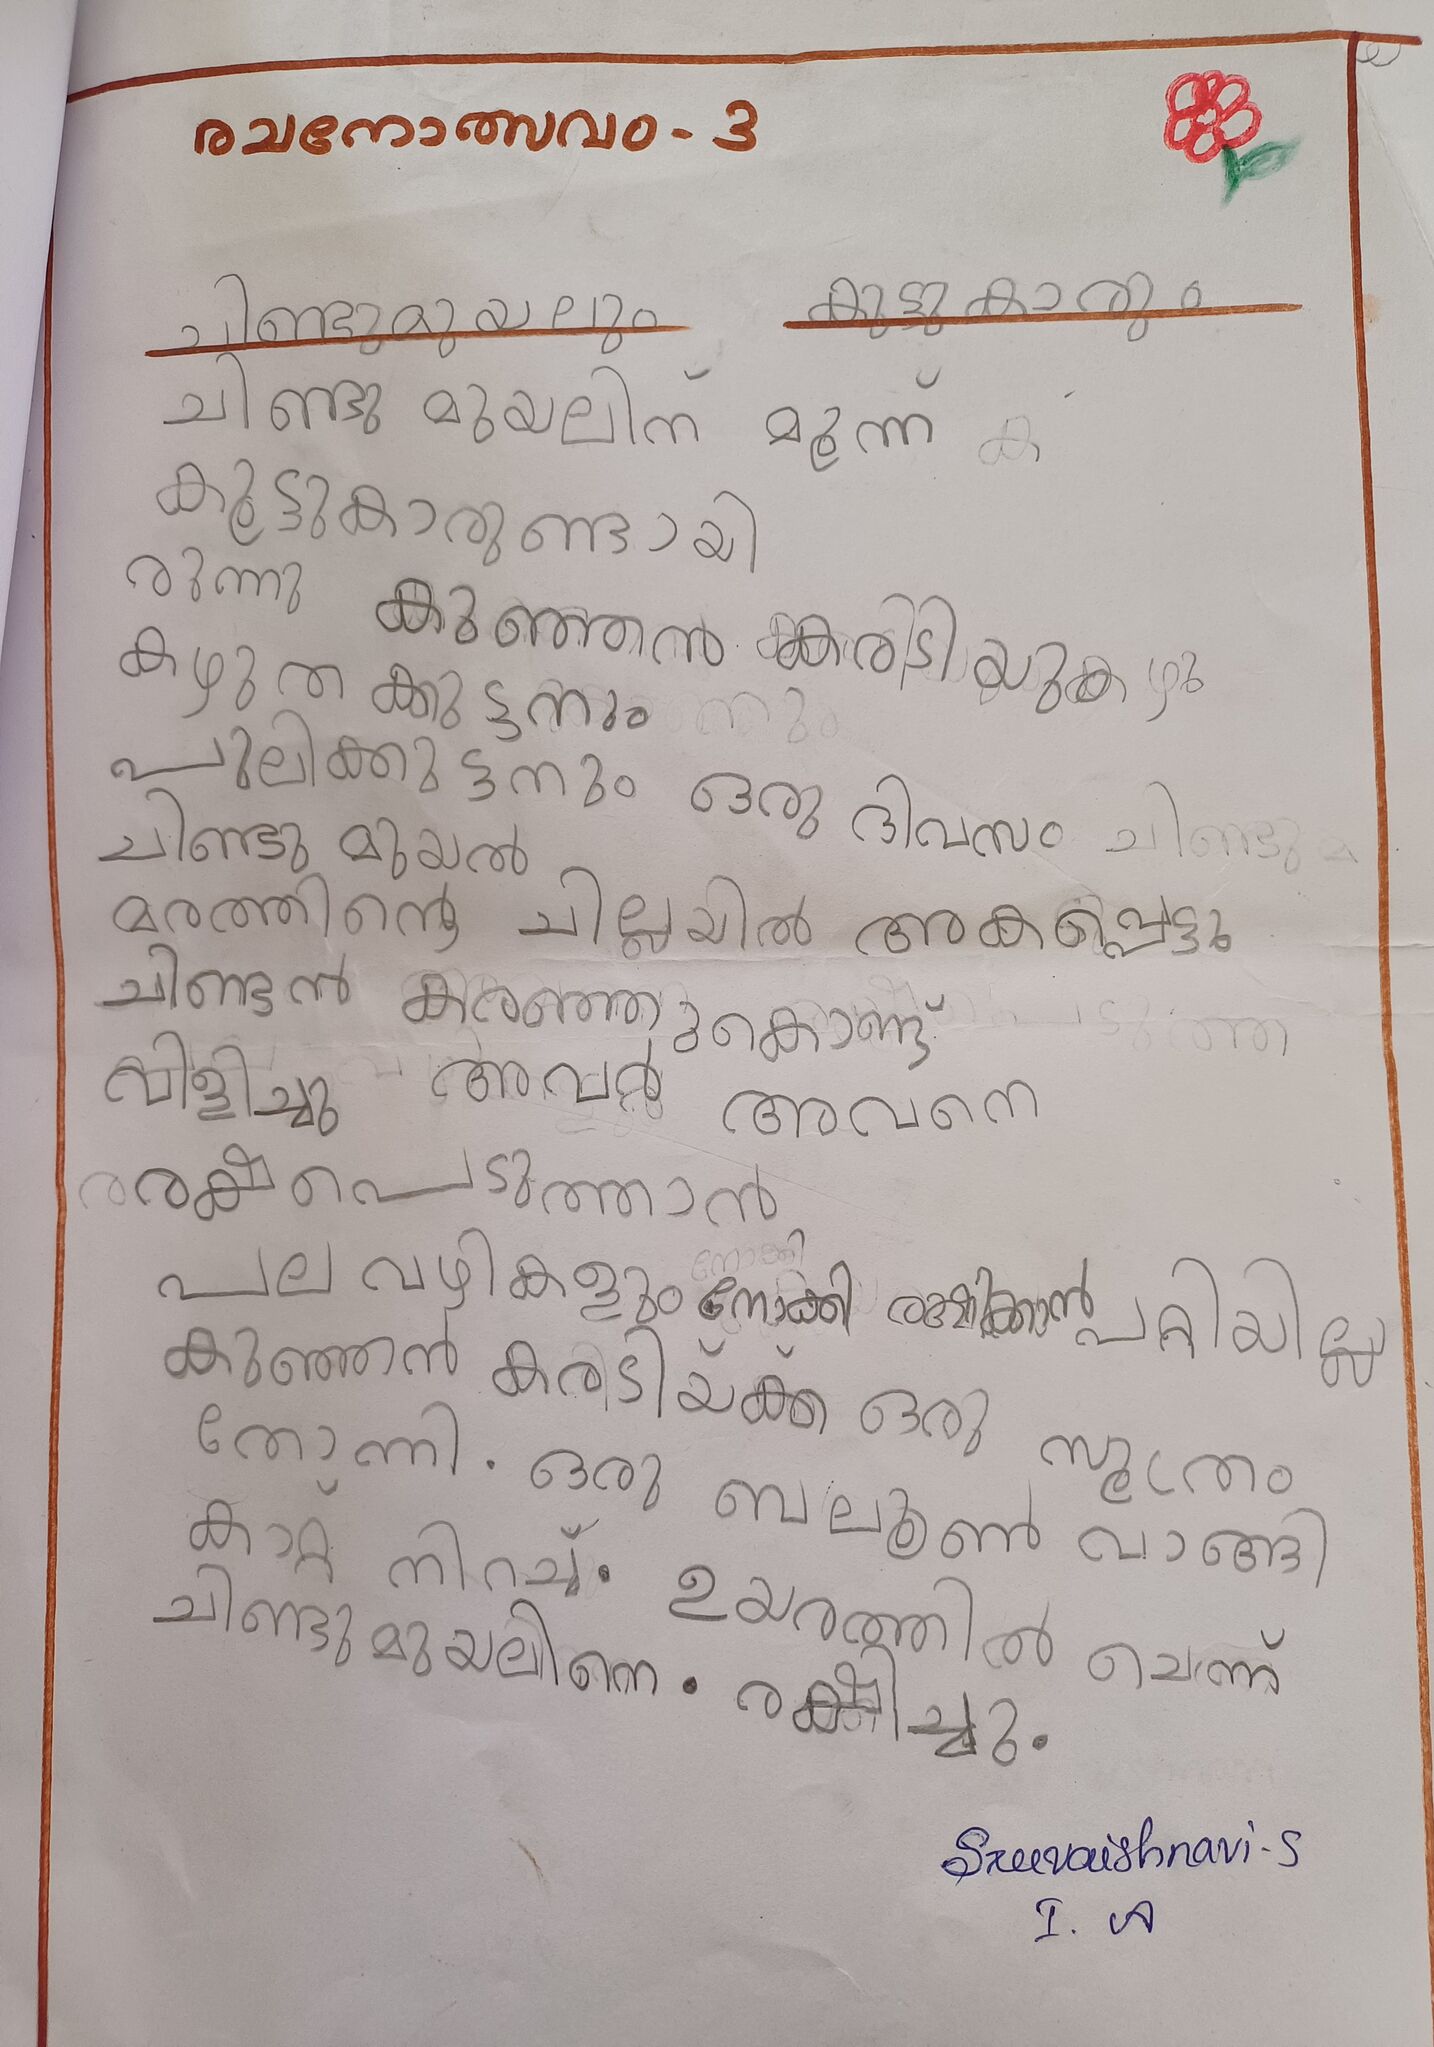 രചനോത്സവം - 3
ചിണ്ടുമുയലും കുട്ടുകാരും
ചിണ്ടു മുയലിന് മൂന്ന് ക
കൂട്ടുകാരുണ്ടായി
രുന്നു കുഞ്ഞൻ കരിടിയുകഴു
കഴുത കുട്ടനും
പുലിക്കുട്ടനും ഒരു ദിവസം ചിണ്ടുമ
ചിണ്ടു മുയൽ
മരത്തിന്റെ ചില്ലയിൽ അകപ്പെട്ടു
ചിണ്ടൻ കരഞ്ഞുകൊണ്ട്
വിളിച്ചു അവർ അവനെ
രക്ഷപെടുത്താൻ
പല വഴികളും നോക്കി രക്ഷിക്കാൻ പറ്റിയില്ല
കുഞ്ഞൻ കരിടിയ്ക്ക് ഒരു സൂത്രം
തോന്നി. ഒരു ബലൂൺ വാങ്ങി
കാറ്റ് നിറച്ച്. ഉയരത്തിൽ ചെന്ന്
ചിണ്ടുമുയലിനെ. രക്ഷിച്ചു.
Sreevaishnavi-S
I. A